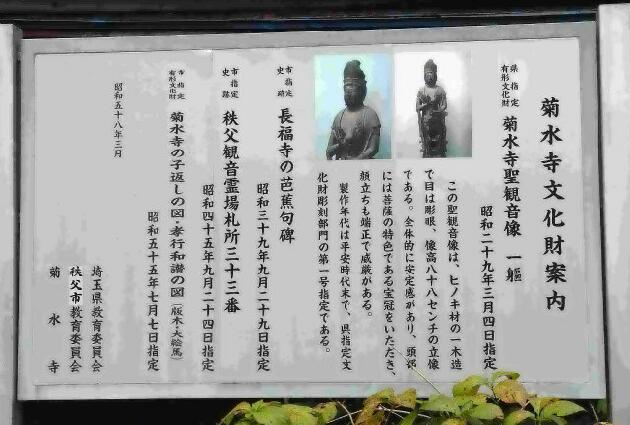 菊水寺文化財案内
県指定
有形文化財
菊水寺聖観音像 一軀
昭和二十九年三月四日指定
この聖観音像は、ヒノキ材の一木造
で目は彫眼、像高八十八センチの立像
である。全体的に安定感があり、頭部
には菩薩の特色である宝冠をいただき、
顔立ちも端正で威厳がある。
製作年代は平安時代末で、県指定文
化財彫刻部門の第一号指定である。
市指定
史跡
長福寺の芭蕉句碑
昭和三十九年九月二十九日指定
市指定
史跡
秩父観音霊場札所三十三番
昭和四十五年九月二十四日指定
市指定
有形文化財
菊水寺の子返しの図・孝行和讃の図(版木・大絵馬)
昭和五十五年七月七日指定
昭和五十八年三月
埼玉県教育委員会
秩父市教育委員会
菊水寺